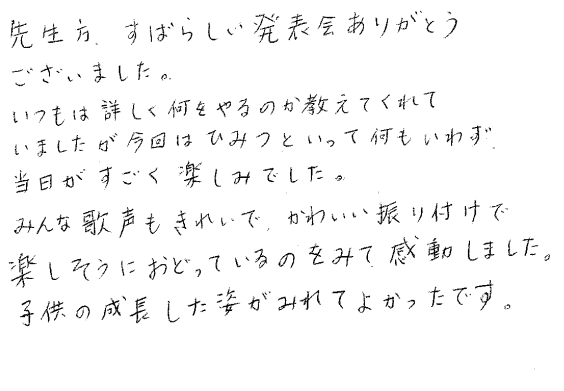 先生方、すばらしい発表会ありがとう
ございました。
いつもは詳しく何をやるのか教えてくれて
いましたが今回はひみつといって何もいわず、
当日がすごく楽しみでした。
みんな歌声もきれいで、かわいい振り付けで
楽しそうにおどっているのをみて、感動しました。
子供の成長した姿がみれてよかったです。